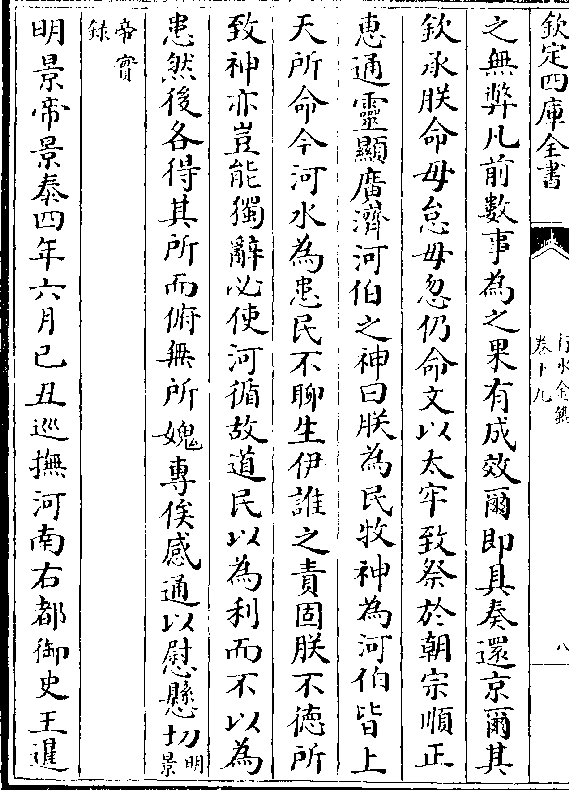 欽定四庫全書
行水金鑑
卷十九
八
之無弊凡前數事為之果有成效爾即具奏還京爾其
欽承朕命毋怠毋忽仍命文以太牢致祭於朝宗順正
惠通靈顯廣濟河伯之神曰朕為民牧神為河伯皆上
天所命今河水為患民不聊生伊誰之責固朕不德所
致神亦豈能獨辭必使河循故道民以為利而不以為
患然後各得其所而俯無所媿專俟感通以慰懸切明景
帝實錄
明景帝景泰四年六月己丑巡撫河南右都御史王暹